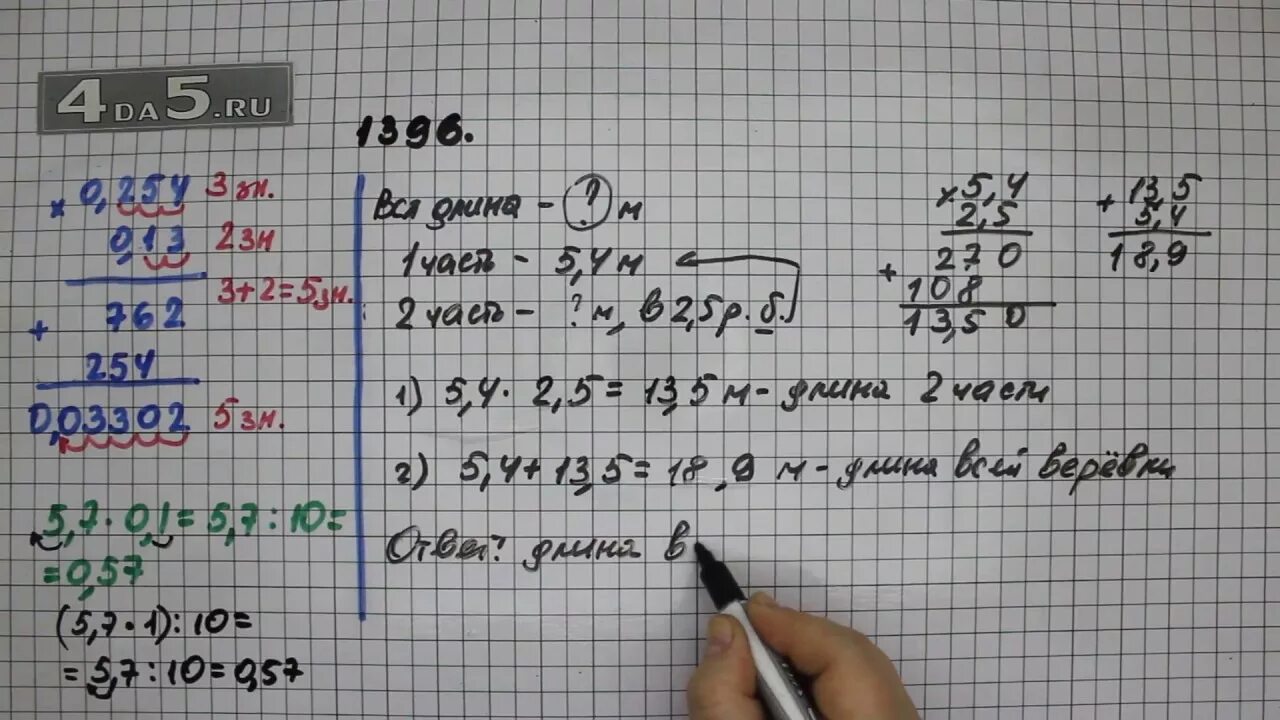 4DA5.RU
1396.
× 0,254 3 зн.
0,13 2 зн
3+2=5 зн.
+ 762
254
0,03302 5 зн.
5,7 · 0,1 = 5,7 : 10 =
= 0,57
(5,7 · 1) : 10 =
= 5,7 : 10 = 0,57
Вся длина - ? м
1 часть - 5,4 м
2 часть - ? м, в 2,5 р. б.
1) 5,4 · 2,5 = 13,5 м - длина 2 части
2) 5,4 + 13,5 = 18,9 м - длина всей верёвки
Ответ: длина в
× 5,4
2,5
+ 270
108
13,50
+ 13,5
5,4
18,9